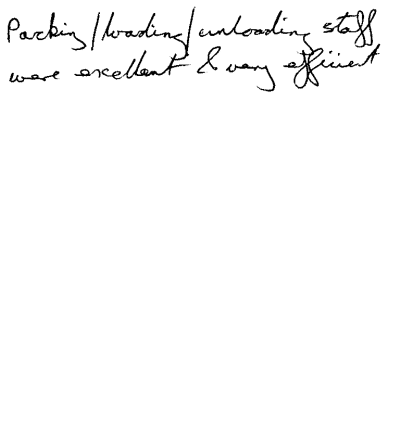 Packing/loading/unloading staff
were excellent & very efficient